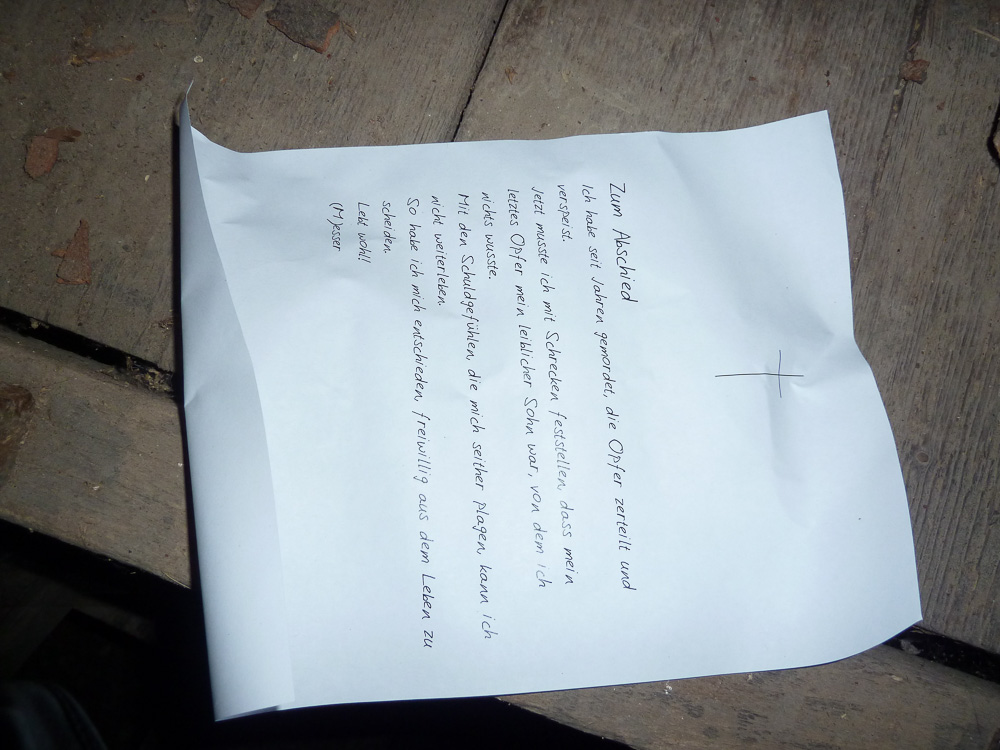 Zum Abschied
Ich habe seit Jahren gemordet, die Opfer zerteilt und
verspeist.
Jetzt musste ich mit Schrecken feststellen, dass mein
letztes Opfer mein leiblicher Sohn war, von dem ich
nichts wusste.
Mit den Schuldgefühlen, die mich seither plagen, kann ich
nicht weiterleben.
So habe ich mich entschieden, freiwillig aus dem Leben zu
scheiden.
Lebt wohl!
(M)esser